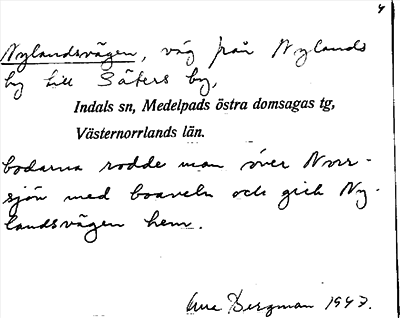 4
Nylandsvägen, väg från Nylands
by till Säters by,
Indals sn, Medelpads östra domsagas tg,
Västernorrlands län.
bodarna rodde man över Norr-
sjön med boaveln och gick Ny-
landsvägen hem.
Arne Bergman 1943.